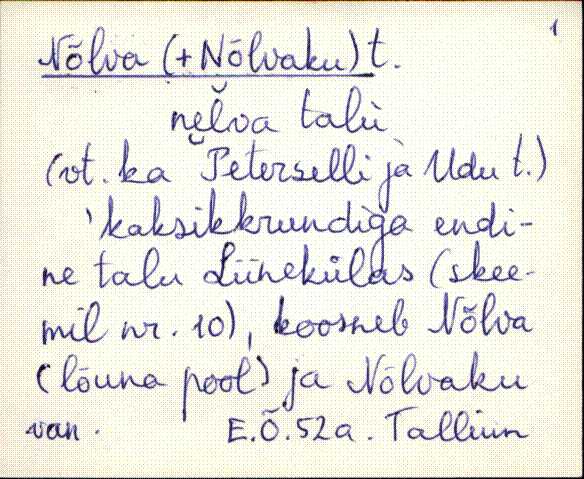 1
Nõlva (+Nõlvaku) t.
nẹ̆lva talu
(vt. ka Peterselli ja Udu t.)
'kaksikkrundiga endi-
ne talu Liinekülas (skee-
mil nr. 10), koosneb Nõlva
(lõuna pool) ja Nõlvaku
van. E.Õ.52a. Tallinn